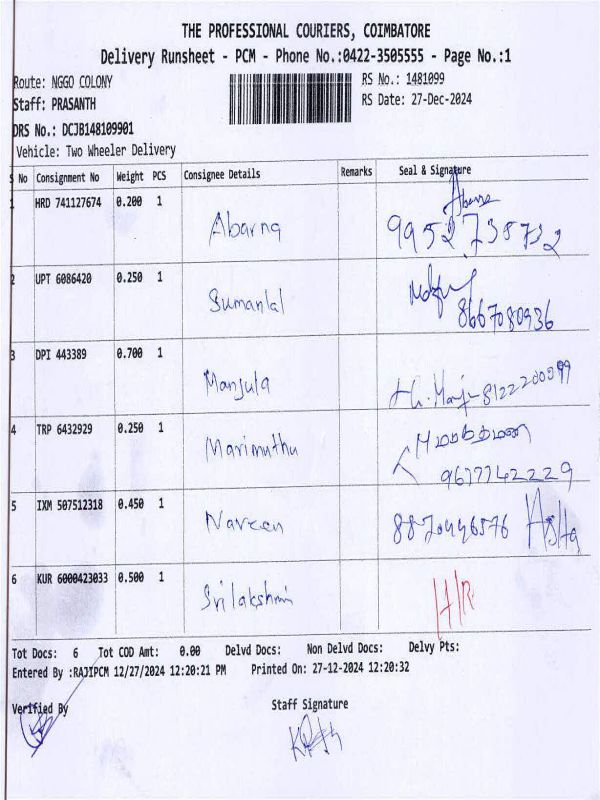 THE PROFESSIONAL COURIERS, COIMBATORE
Delivery Runsheet - PCM - Phone No.:0422-3505555 - Page No.:1
Route: NGGO COLONY RS No.: 1481099
Staff: PRASANTH RS Date: 27-Dec-2024
DRS No.: DCJB148109901
Vehicle: Two Wheeler Delivery
S No Consignment No Weight PCS Consignee Details Remarks Seal & Signature
1 HRD 741127674 0.200 1 Abarna Abarna
9952738732
2 UPT 6086420 0.250 1 Sumanlal
8667080936
3 DPI 443389 0.700 1 Manjula 8122200099
4 TRP 6432929 0.250 1 Marimuthu
9677742229
5 IXM 507512318 0.450 1 Naveen 8870446576
6 KUR 6000423033 0.500 1 Srilakshmi H/R
Tot Docs: 6 Tot COD Amt: 0.00 Delvd Docs: Non Delvd Docs: Delvy Pts:
Entered By :RAJIPCM 12/27/2024 12:20:21 PM Printed On: 27-12-2024 12:20:32
Verified By Staff Signature